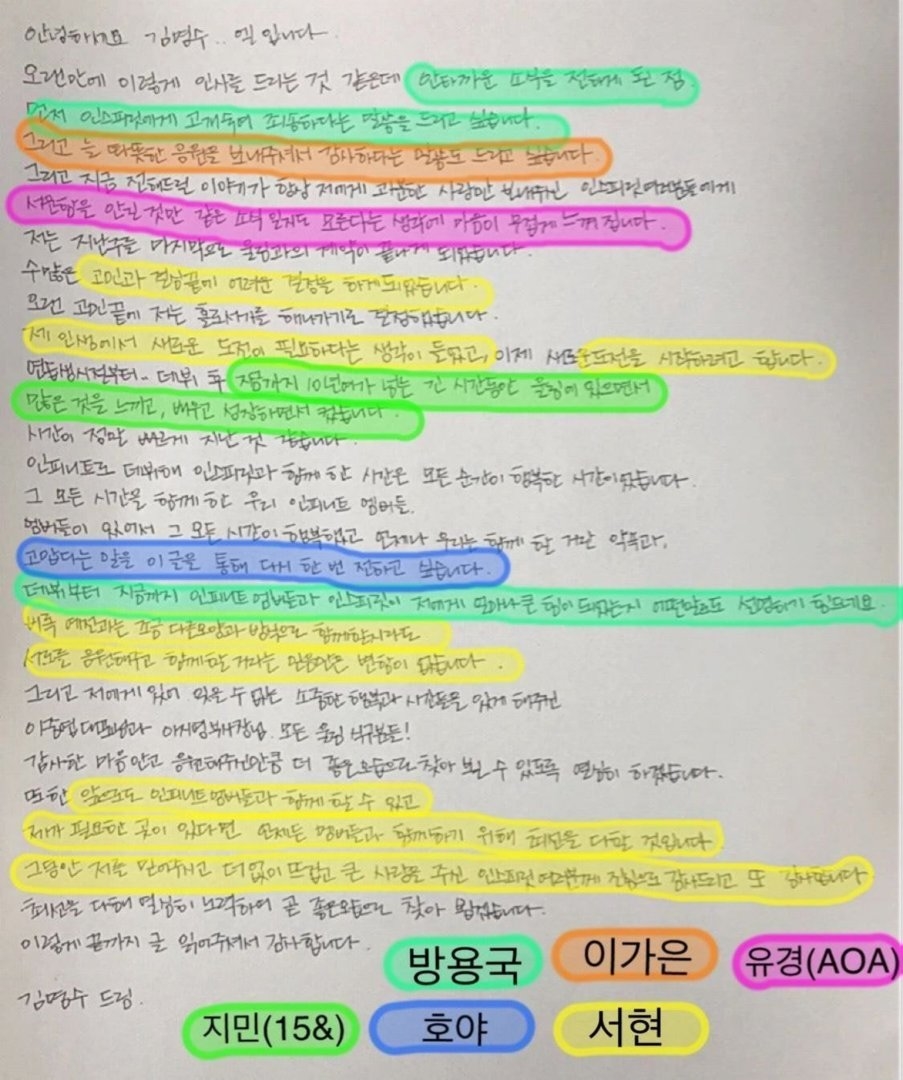 안녕하세요 김명수.. 엘 입니다.
오랜만에 이렇게 인사를 드리는 것 같은데 안타까운 소식을 전하게 된 점
먼저 인스피릿에게 고개숙여 죄송하다는 말씀을 드리고 싶습니다.
그리고 늘 따뜻한 응원을 보내주셔서 감사하다는 말씀도 드리고 싶습니다.
그리고 지금 전해드릴 이야기가 항상 저에게 과분한 사랑만 보내주신 인스피릿여러분들에게
서운함을 안길 것만 같은 소식 일지도 모른다는 생각에 마음이 무겁게 느껴집니다.
저는 지난주를 마지막으로 울림과의 계약이 끝나게 되었습니다.
수많은 고민과 결심끝에 어려운 결정을 하게되었습니다.
오랜 고민끝에 저는 홀로서기를 해나가기로 결정했습니다.
제 인생에서 새로운 도전이 필요하다는 생각이 들었고, 이제 새로운도전을 시작하려고 합니다.
연습생시절부터.. 데뷔 후 지금까지 10년여가 넘는 긴 시간동안 울림에 있으면서
많은 것을 느끼고, 배우고 성장하면서 컸습니다.
시간이 정말 빠르게 지난 것 같습니다.
인피니트로 데뷔해 인스피릿과 함께 한 시간은 모든 순간이 행복한 시간이었습니다.
그 모든 시간을 함께 한 우리 인피니트 멤버들.
멤버들이 있어서 그 모든 시간이 행복했고 언제나 우리는 함께 할 거란 약속과,
고맙다는 말을 이 글을 통해 다시 한 번 전하고 싶습니다.
데뷔부터 지금까지 인피니트멤버들과 인스피릿이 저에게 얼마나 큰 힘이 되었는지 어떤말로도 설명하기 힘드네요.
비록 예전과는 조금 다른모양과 방식으로 함께할지라도
서로를 응원해주고 함께할 거라는 믿음만은 변함이 없습니다.
그리고 저에게 있어 잊을 수 없는 소중한 행복과 시간들을 있게 해주신
이중엽대표님과 이시영부사장님. 모든 울림 식구분들!
감사한 마음안고 응원해주신만큼 더 좋은모습으로 찾아 뵐 수 있도록 열심히 하겠습니다.
또한 앞으로도 인피니트멤버들과 함께 할 수 있고
제가 필요한 곳이 있다면 언제든 멤버들과 함께하기 위해 최선을 다할 것입니다
그동안 저를 믿어주시고 더없이 뜨겁고 큰 사랑을 주신 인스피릿여러분께 진심으로 감사드리고 또 감사합니다
최선을 다해 열심히 노력하여 곧 좋은모습으로 찾아 뵙겠습니다.
이렇게 끝까지 글 읽어주셔서 감사합니다.
김명수 드림.
방용국 이가은 유경(AOA)
지민(15&) 호야 서현